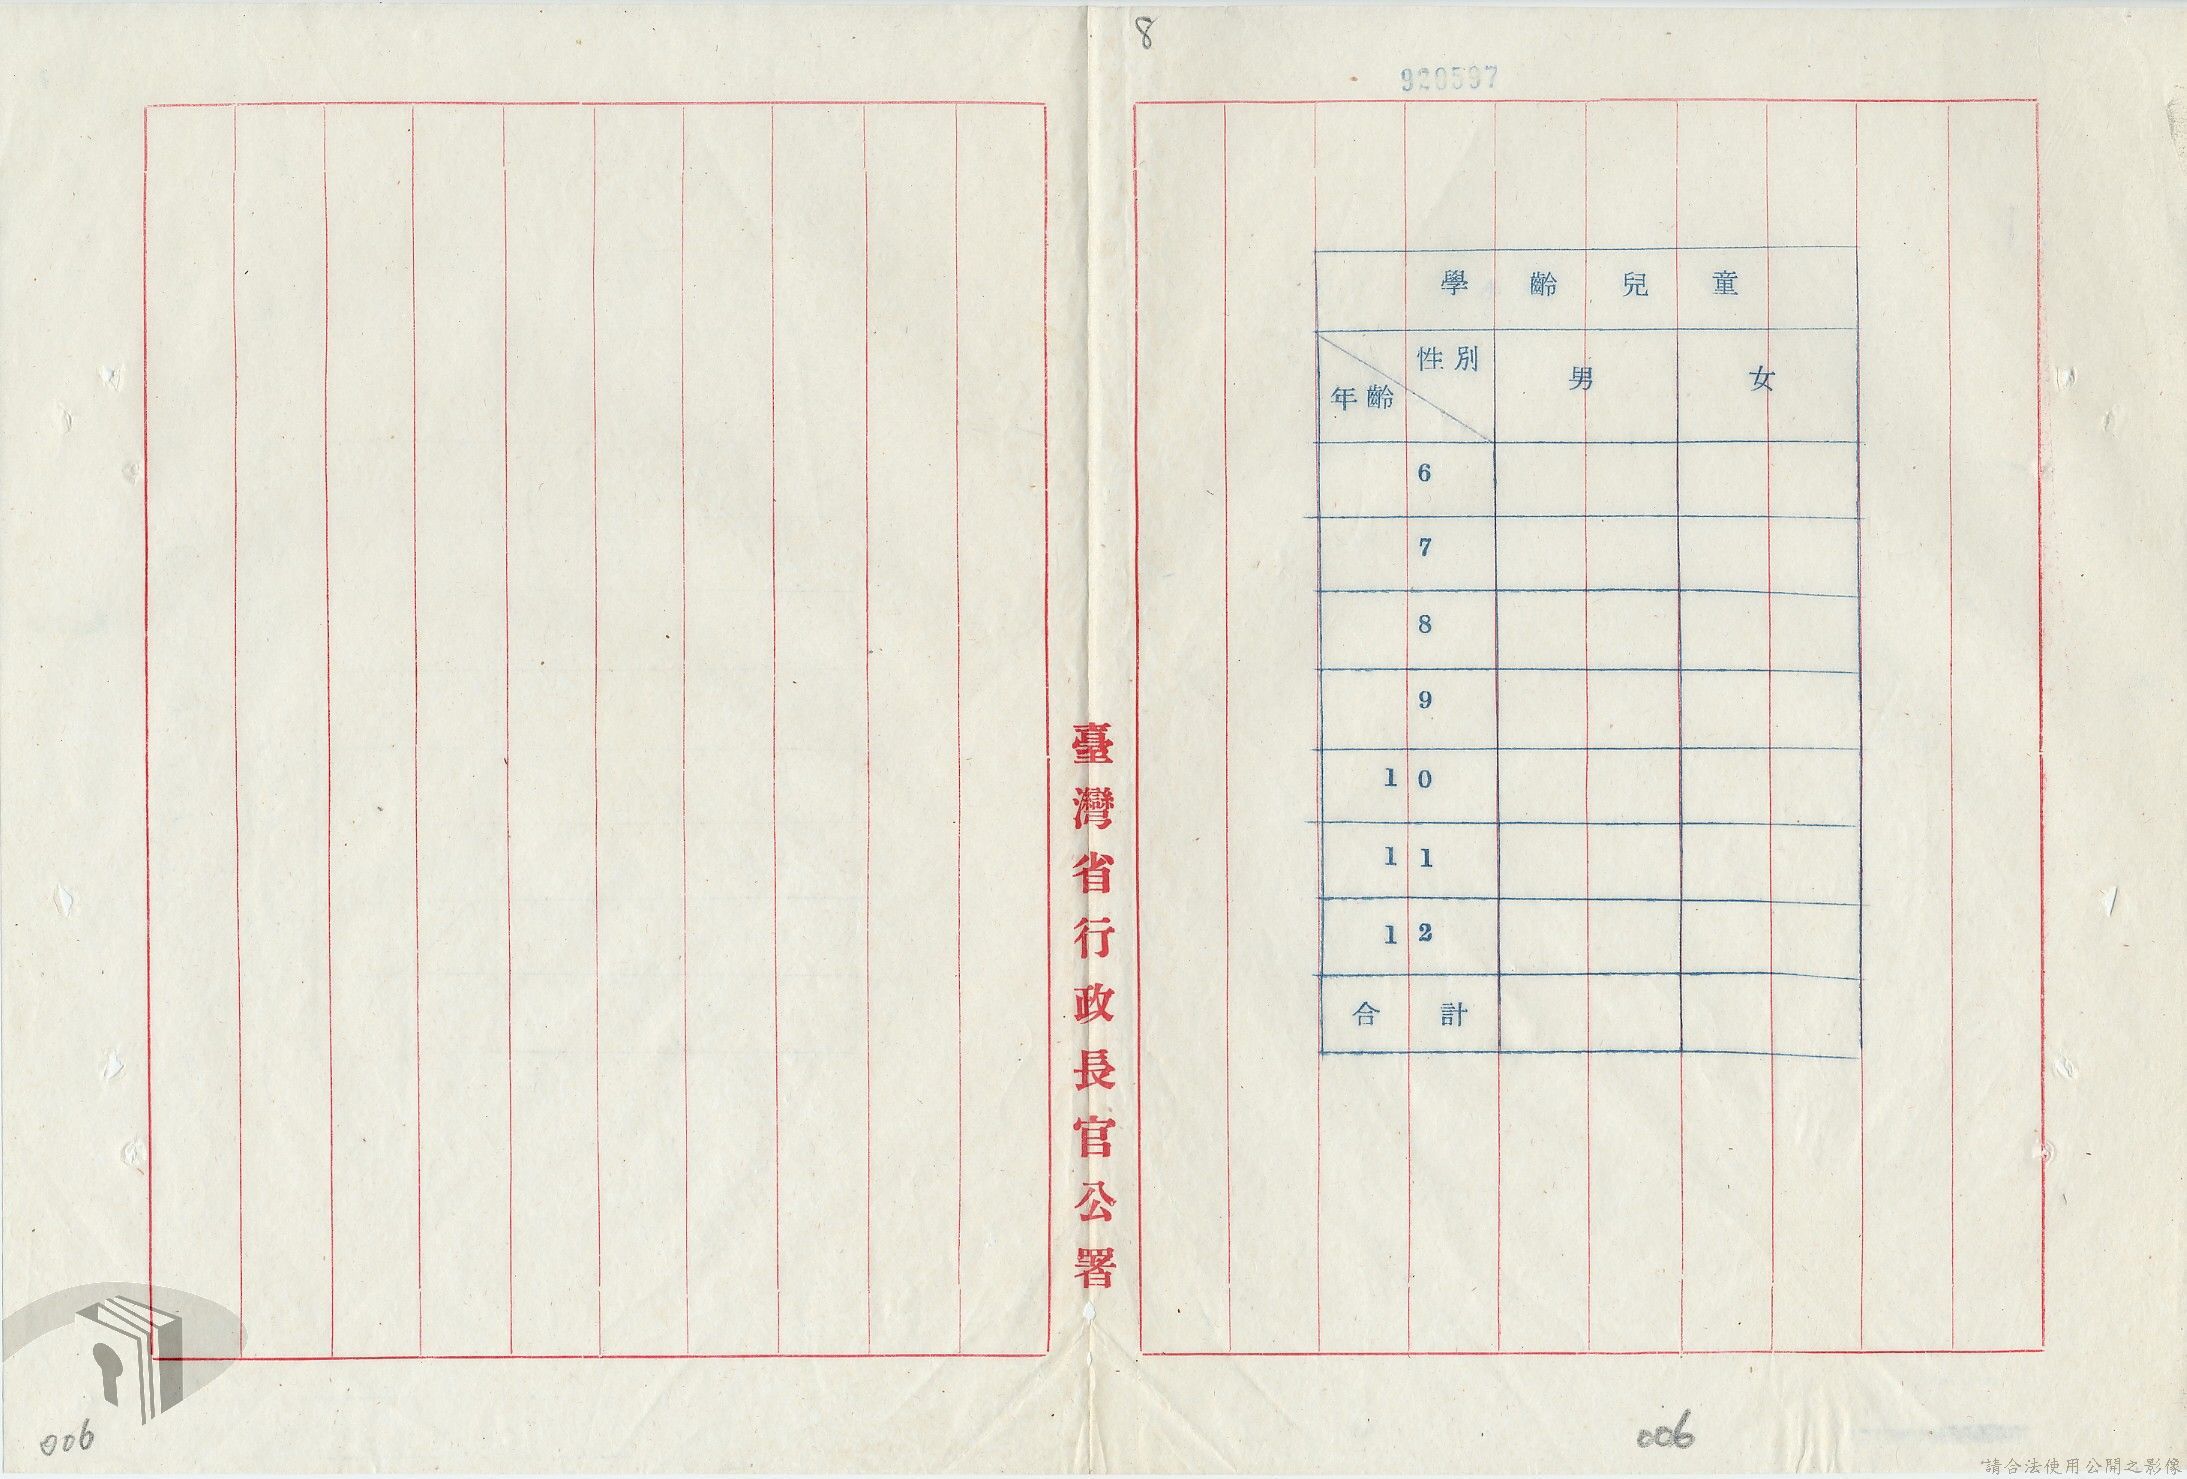 8
920597
學齡兒童
性別
年齡
男
女
6
7
8
9
10
11
12
合計
臺灣省行政長官公署
006
006
請合法使用公開之影像